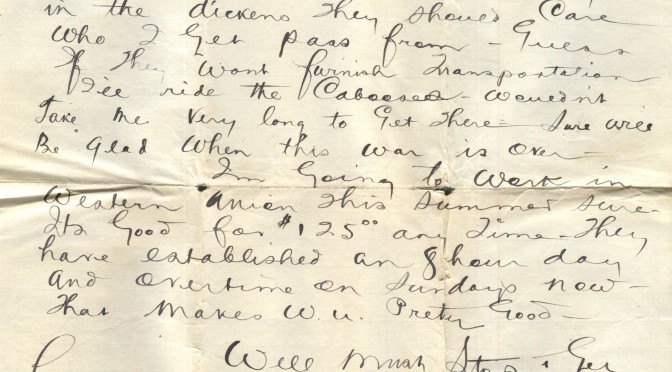 in the dickens they should Care
Who I Get pass from - Guess
If They Wont furnish Transportation
I'll ride the Cabooses - Wouldn't
Take me Very long to Get There - Sure will
Be Glad When this war is over -
I'm Going to Work in
Western Union This Summer Sure -
Its Good for $125.00 any Time - They
have established an 8 hour day
and overtime on Sundays now -
That Makes W.U. Pretty Good -
Well Must Stop & Get